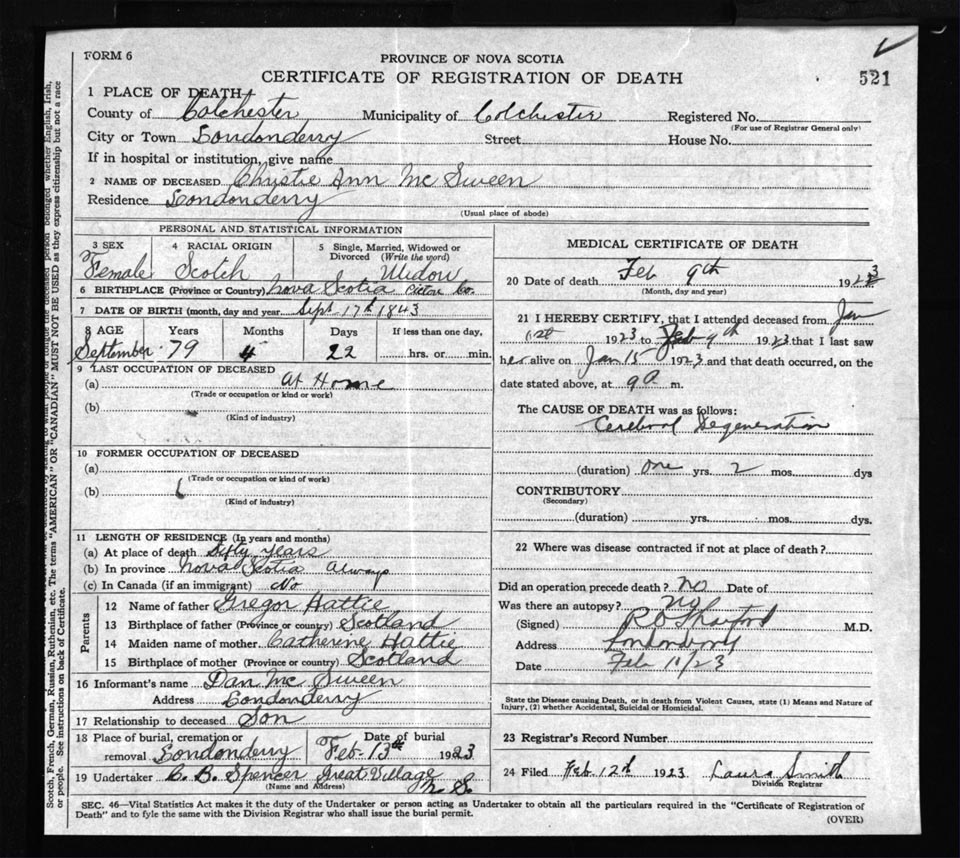 FORM 6
PROVINCE OF NOVA SCOTIA
CERTIFICATE OF REGISTRATION OF DEATH
521
1 PLACE OF DEATH
County of Colchester Municipality of Colchester Registered No.
(For use of Registrar General only)
City or Town Londonderry Street House No.
If in hospital or institution, give name
2 NAME OF DECEASED Christie Ann Mc Sween
Residence Londonderry
(Usual place of abode)
PERSONAL AND STATISTICAL INFORMATION
3 SEX 4 RACIAL ORIGIN 5 Single, Married, Widowed or Divorced (Write the word)
Female Scotch Widow
6 BIRTHPLACE (Province or Country) Nova Scotia Pictou Co.
7 DATE OF BIRTH (month, day and year Sept 17th 1843
8 AGE Years Months Days If less than one day,
September 79 4 22 hrs. or min.
9 LAST OCCUPATION OF DECEASED
(a) At Home
(Trade or occupation or kind or work)
(b)
(Kind of industry)
10 FORMER OCCUPATION OF DECEASED
(a)
(Trade or occupation or kind of work)
(b)
(Kind of industry)
11 LENGTH OF RESIDENCE (In years and months)
(a) At place of death fifty years
(b) In province Nova Scotia always
(c) In Canada (if an immigrant) No
Parents
12 Name of father Gregor Hattie
13 Birthplace of father (Province or country) Scotland
14 Maiden name of mother Catherine Hattie
15 Birthplace of mother (Province or country) Scotland
16 Informant's name Dan Mc Sween
Address Londonderry
17 Relationship to deceased Son
18 Place of burial, cremation or removal Londonderry Date of burial Feb 13th 1923
19 Undertaker C. B. Spencer Great Village N. S.
(Name and Address)
MEDICAL CERTIFICATE OF DEATH
20 Date of death Feb 9th 1923
(Month, day and year)
21 I HEREBY CERTIFY, that I attended deceased from Jan
1st 1923 to Feb 9th 1923 that I last saw
her alive on Jan 15 1923 and that death occurred, on the
date stated above, at 9 a m.
The CAUSE OF DEATH was as follows:
Cerebral Degeneration
(duration) one yrs. 2 mos. dys
CONTRIBUTORY
(Secondary)
(duration) yrs. mos. dys.
22 Where was disease contracted if not at place of death?
Did an operation precede death? no Date of
Was there an autopsy? no
(Signed) M.D.
Address Londonderry
Date Feb 11/23
State the Disease causing Death, or in death from Violent Causes, state (1) Means and Nature of
Injury, (2) whether Accidental, Suicidal or Homicidal.
23 Registrar's Record Number
24 Filed Feb 12th 1923 Laura Smith
Division Registrar
SEC. 46—Vital Statistics Act makes it the duty of the Undertaker or person acting as Undertaker to obtain all the particulars required in the "Certificate of Registration of
Death" and to fyle the same with the Division Registrar who shall issue the burial permit.
(OVER)
Scotch, French, German, Russian, Ruthenian, etc. The terms "AMERICAN" OR "CANADIAN" MUST NOT BE USED as they express citizenship but not a race
or people. See instructions on back of Certificate.